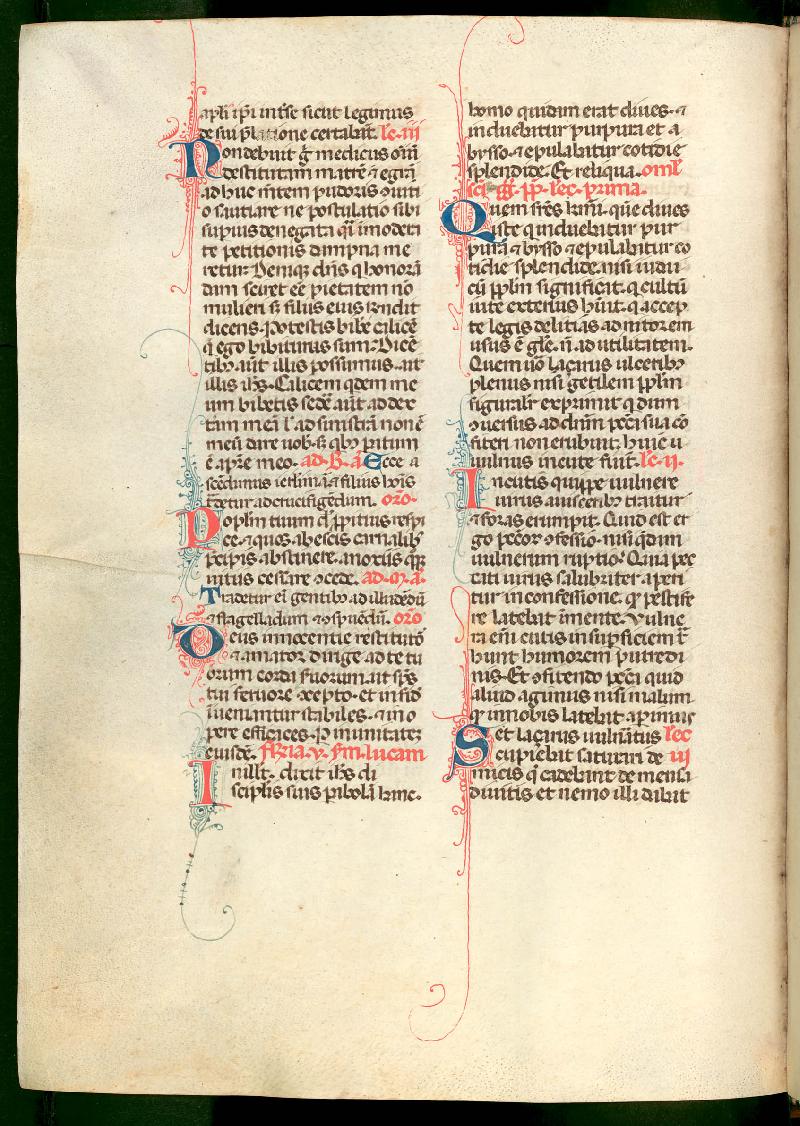 apłi ip̄i int̄se sicut legimus
de sui p̄latione certabāt. lc̄. iii
Non debuit g̊ medicus om̄i
destitutam matrē ⁊ egrā
adhuc mētem pudoris ꝯuiti
o sautiare ne postulatio sibi
supius denegata qͣi imodera
te petitionis dampna me
retur. Deniq; dn̄s q honorā
dam sciret eē pietatem nō
mulieri s; filiis eius rn̄dit
dicens. Potestis bibe calicē
q̄ ego bibiturus sum. Dicē
tibꝫ. aūt illis possumus. ait
illis ih̄s. Calicem qdem me
um bibetis sedē aūt ad dex
tram meā l' ad sinistrā non ē
meū dare uob. s; qbꝫ pͣatum
ē a pr̄e meo. ad. B. a. Ecce a
scēdimus ierl̄imā ⁊ filius hōis
tͣdetur ad crucifigēdum. or̄o.
Poplm̄ tuum dn̄e ꝓpitius respi
ce. ⁊ quos ab escis carnalibꝫ
p̄cipis abstinere. a noxiis qꝫ
uitiis cessare ꝯcede. ad. m̄. a.
Tradetur ei gentibꝫ ad illudēdū
⁊ flagellādum ⁊ ꝯspuēdū. or̄o
Deus innocentie restitutor̄
⁊ amator dirige ad te tu
orum corda s̄uorum. ut sp̄s
tui feruore ꝯcepto. et in fid̄
inueniantur stabiles. ⁊ in o
pere efficaces. P. in unitate
eiusdē. Feria. v. sm̄. lucam
In ill̄. t. dixit ih̄s di
scipl̄is suis pͣabolā hanc.
homo quidam erat diues. ⁊
induebatur purpura et a
bysso. ⁊ epulabatur cotidie
splendide. Et reliqua. oml̄
sc̄i. g̊g. pp̄. lec. prima.
Quem fr̄es kmī. quē diues
iste q induebatur pur
pura ⁊ bysso ⁊ epulabatur co
tidie splendide. nisi iudai
cū pp̄lm significat. q cultū
uite exterius hūit. q accep
te legis delitias ad nitorem
usus ē gl̄e. n̄ ad utilitatem.
Quem uͦo laçarus ulceribꝫ
plenus nisi gētilem pp̄lm
figuralr̄ exprimit. q dum
ꝯuersus ad dn̄m pcc̄a sua cō
fiteri non erubuit. huic u
ulnus in cute fuit. lc̄. ii.
In cutis quippe uulnere
uirus a uisceribꝫ traitur
⁊ foras erumpit. Quid est er
go pcc̄or̄ ꝯfessio. nisi qdam
uulnerum ruptio? Quia pec
cati uirus salubriter aperi
tur in confessione. qͣ pestife
re latebat in mente. Vulne
ra eni cutis in supficiem t͛
hunt humorem putredi
nis. Et ꝯfitendo pcc̄a quid
aliud agimus nisi malum
qͣ in nobis latebat aperimus
Set laçarus uulnatus lec
cupiebat saturari de iii
micis q̄ cadebant de mensa
diuitis et nemo illi dabat